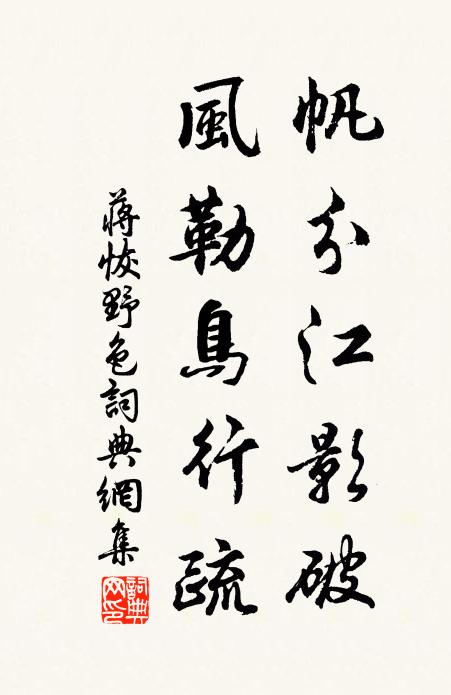 帆分江影破
風勒鳥行疏
蔣恢野色詞典網集
詞典網印